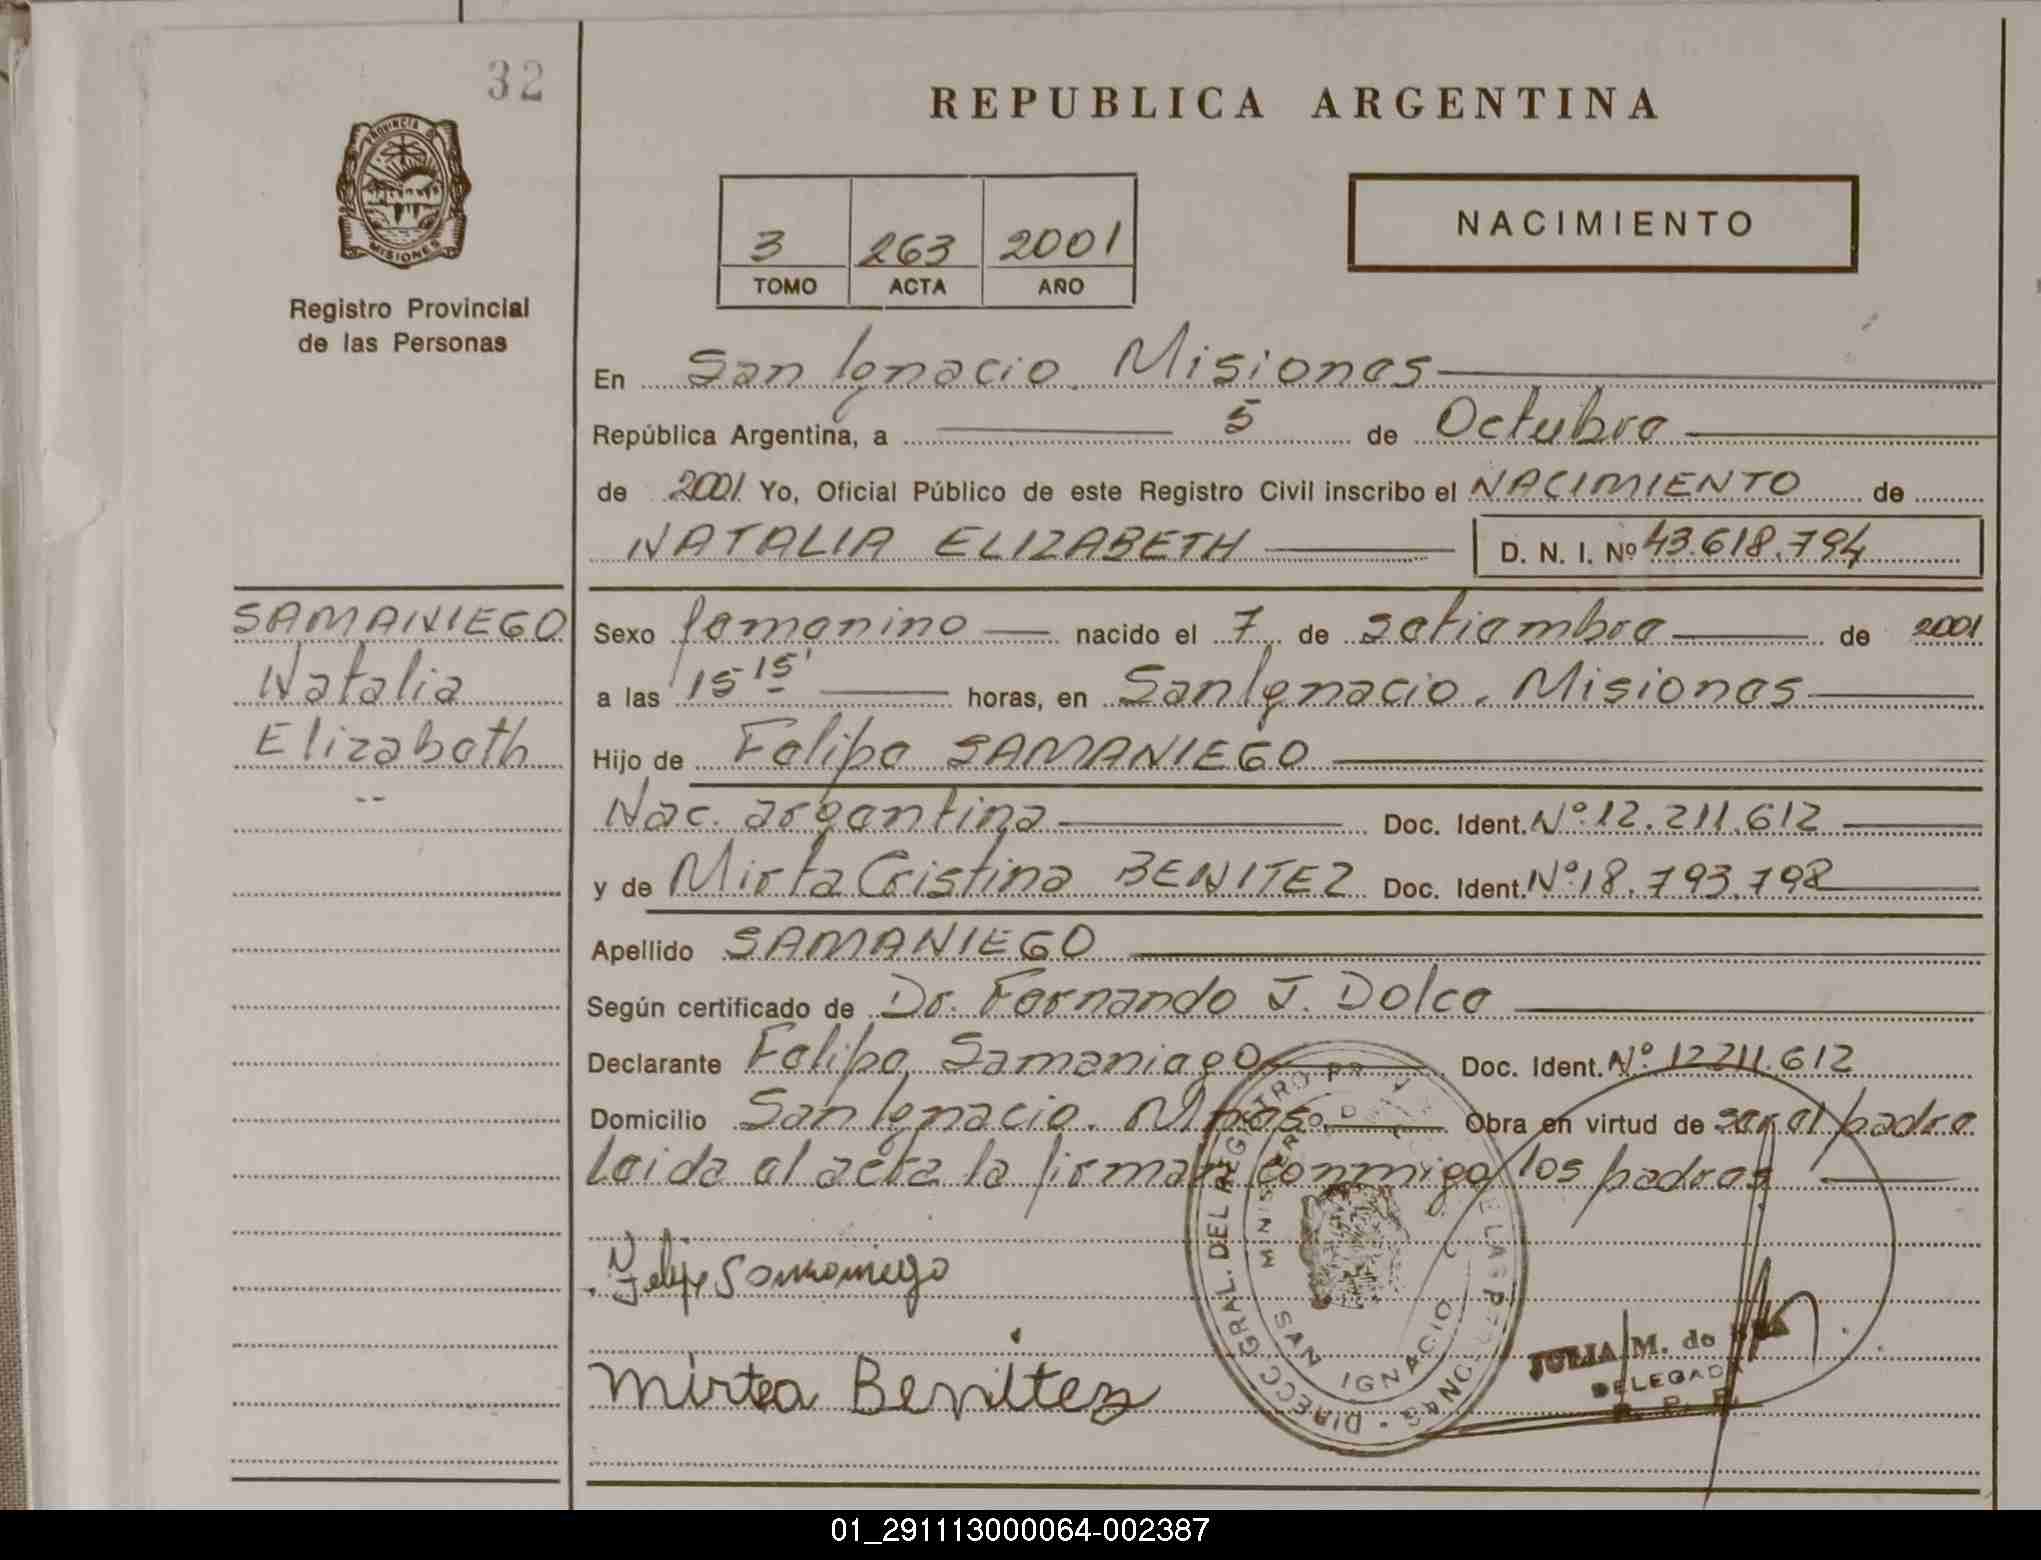 32
PROVINCIA DE MISIONES
Registro Provincial
de las Personas
REPUBLICA ARGENTINA
3 263 2001
TOMO ACTA AÑO
NACIMIENTO
En San Ignacio. Misiones
República Argentina, a 5 de Octubre
de 2001 Yo, Oficial Público de este Registro Civil inscribo el NACIMIENTO de
NATALIA ELIZABETH D. N. I. Nº 43.618.794
SAMANIEGO
Natalia
Elizabeth
Sexo femenino nacido el 7 de setiembre de 2001
a las 15 15' horas, en San Ignacio. Misiones
Hijo de Felipe SAMANIEGO
Nac. argentina Doc. Ident. Nº 12.211.612
y de Mirta Cristina BENITEZ Doc. Ident. Nº 18.793.798
Apellido SAMANIEGO
Según certificado de Dr. Fernando J. Dolce
Declarante Felipe Samaniego Doc. Ident. Nº 12211.612
Domicilio San Ignacio. Mnes. Obra en virtud de ser el padre
Leida el acta la firman conmigo los padres
Felipe Samaniego
Mirta Benitez
DIRECC. GRAL. DEL REGISTRO DE LAS PERSONAS
SAN IGNACIO
JULIA M. de
DELEGADA
R. P. P.
01_291113000064-002387